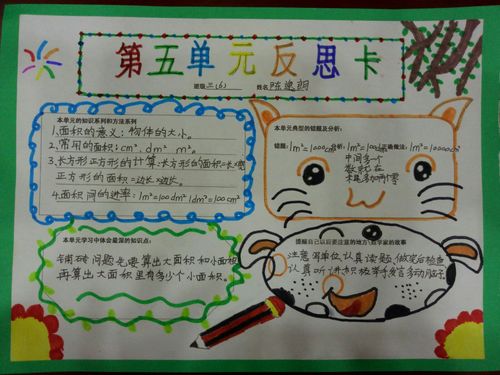 第五单元反思卡
班级 三(6) 姓名 陈
本单元的知识系列和方法系列
1、面积的意义:物体的大小。
2、常用的面积:cm²、dm² m²。
3、长方形正方形的计算:长方形的面积=长×宽
正方形的面积=边长×边长。
4.面积间的进率:1m²=100dm² 1dm²=100cm²
本单元典型的错题及分析:
错题:1m²=1000 分析:1m²=100 正确做法:1m²=10000cm²
中间多个
数就在
末尾多加两个零
本单元学习中体会最深的知识点:
铺砖问题先要算出大面积和小面积
再算出大面积里有多少个小面积。
提醒自己以后要注意的地方/数学家的故事
注意写单位认真读题,做完后检查
认真听讲积极举手发言多动脑子